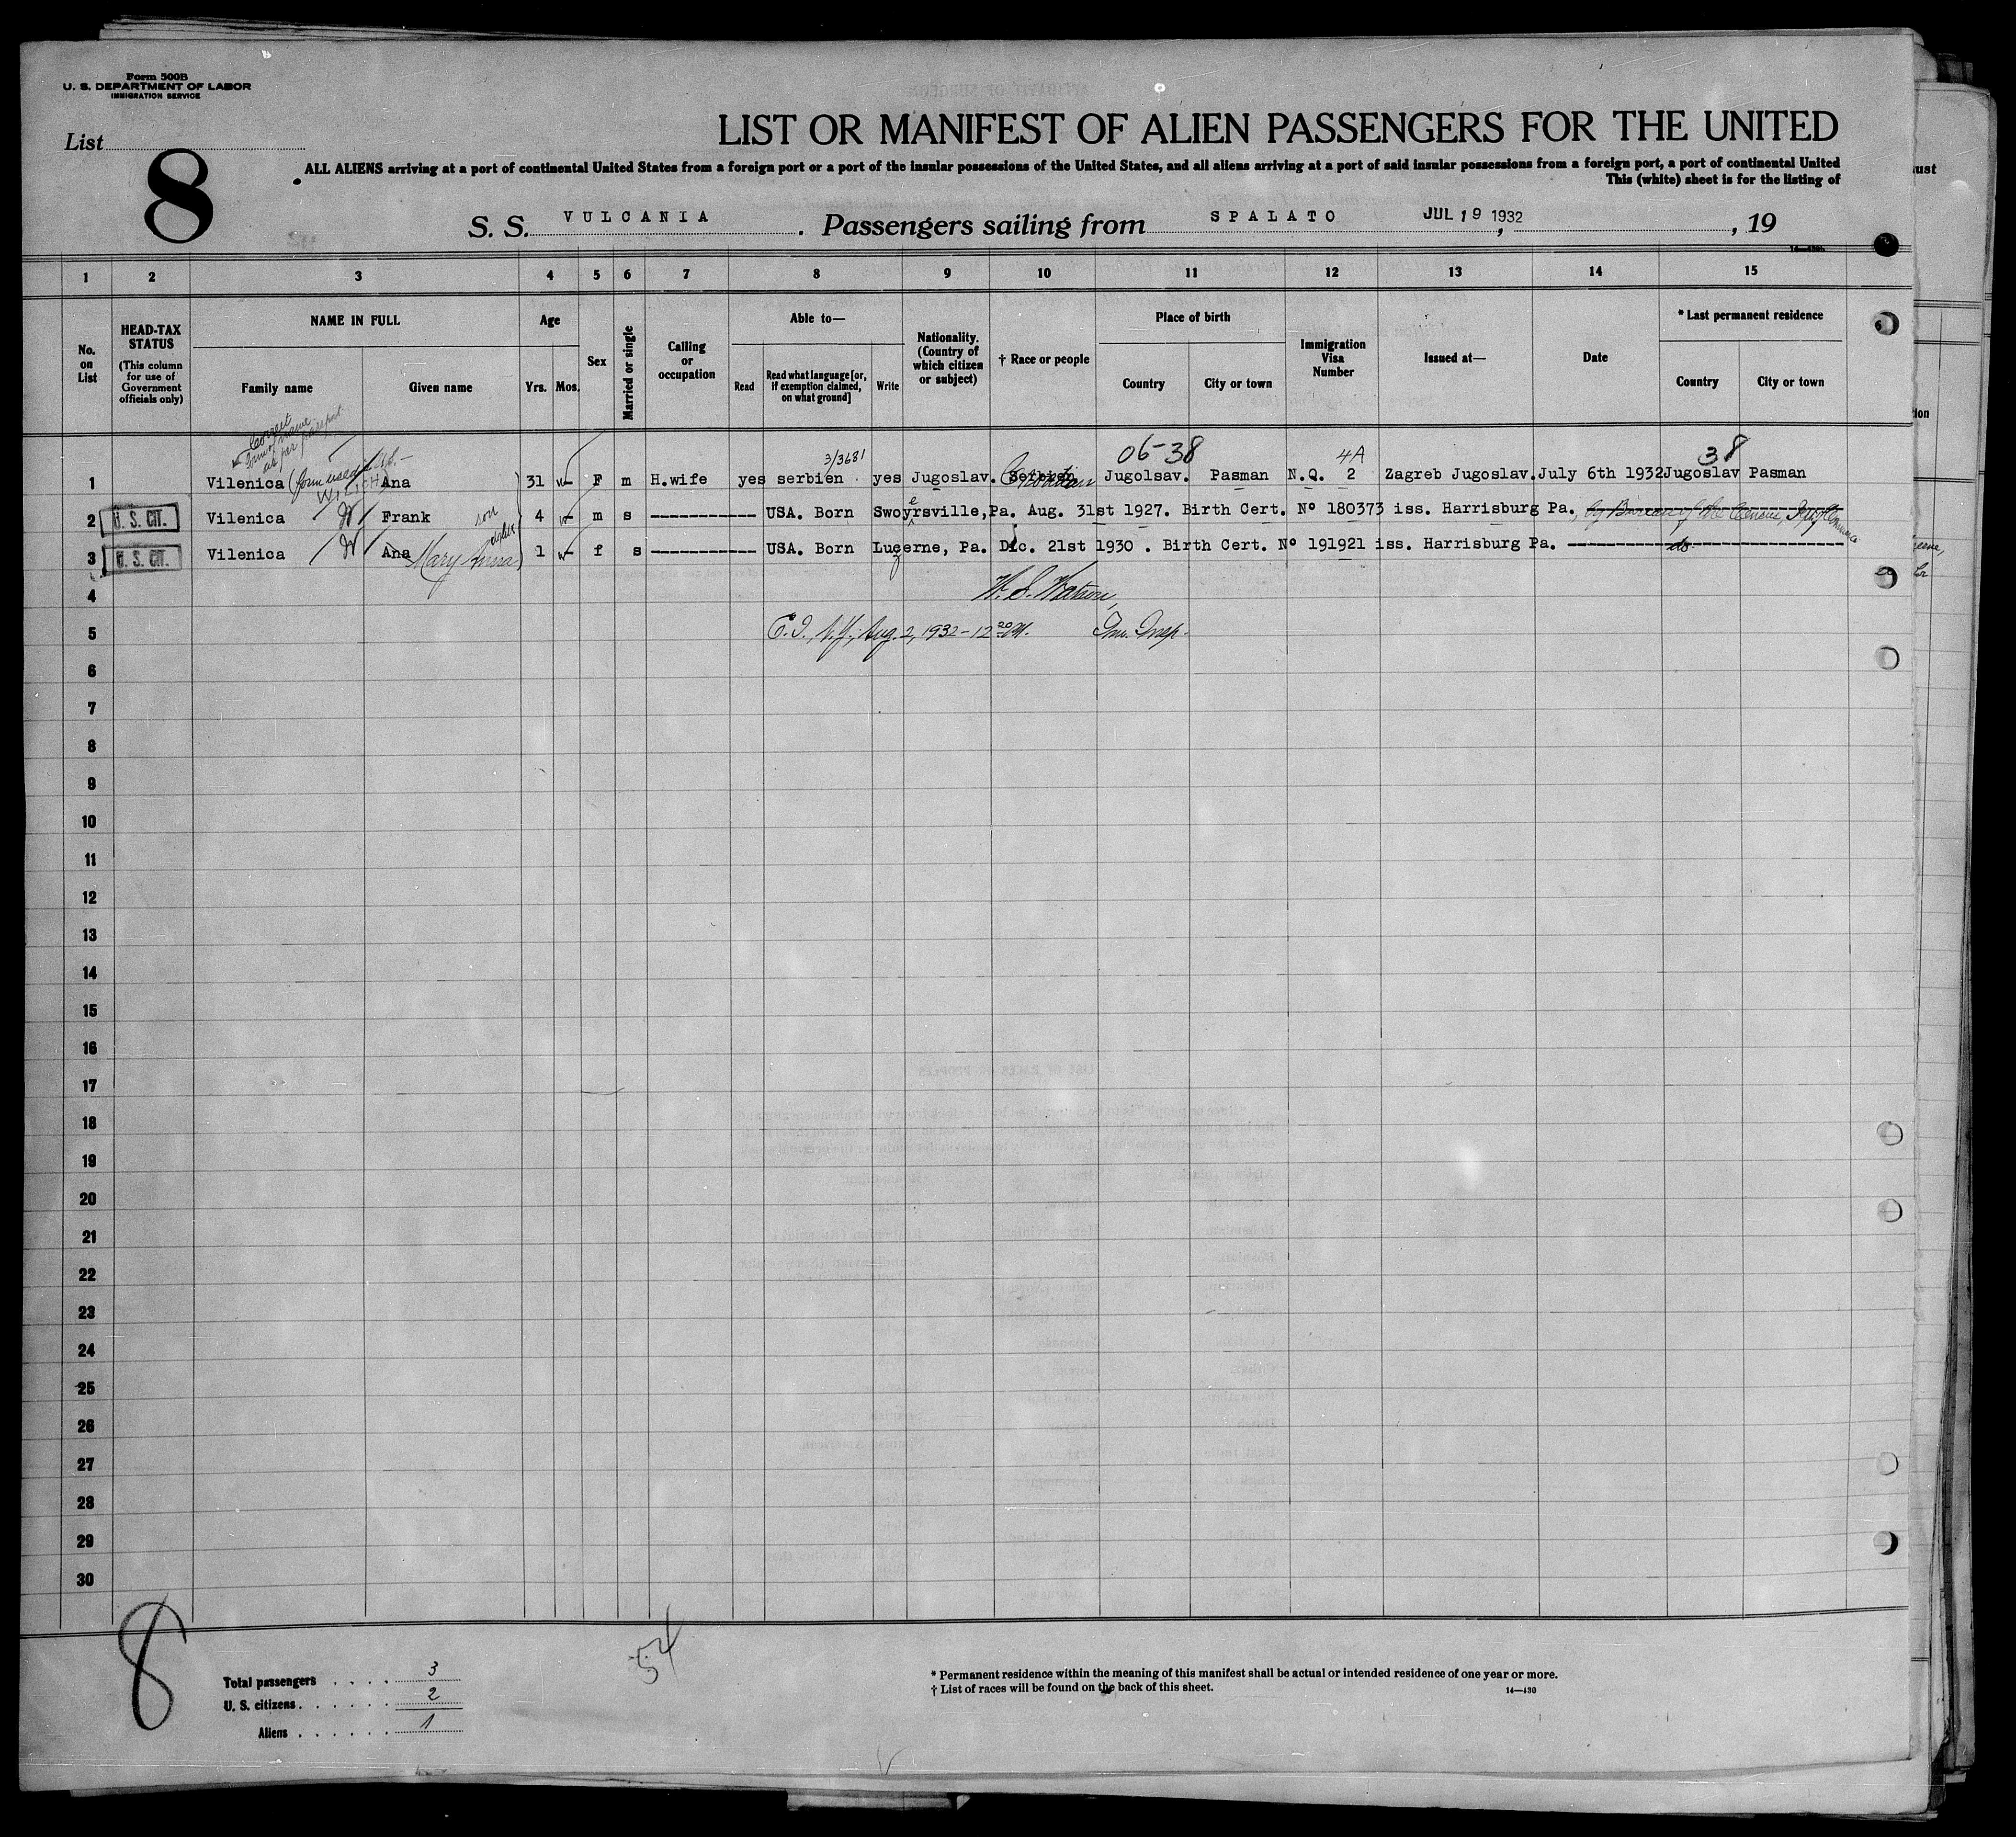 Form 500B
U. S. DEPARTMENT OF LABOR
IMMIGRATION SERVICE
List
8
LIST OR MANIFEST OF ALIEN PASSENGERS FOR THE UNITED
ALL ALIENS arriving at a port of continental United States from a foreign port or a port of the insular possessions of the United States, and all aliens arriving at a port of said insular possessions from a foreign port, a port of continental United
This (white) sheet is for the listing of
S. S. VULCANIA. Passengers sailing from SPALATO JUL 19 1932, , 19
14—430b
1 2 3 4 5 6 7 8 9 10 11 12 13 14 15
No. on List
HEAD-TAX STATUS
(This column for use of Government officials only)
NAME IN FULL
Family name Given name
Age
Yrs. Mos.
Sex
Married or single
Calling or occupation
Able to—
Read
Read what language [or, if exemption claimed, on what ground]
Write
Nationality. (Country of which citizen or subject)
† Race or people
Place of birth
Country City or town
Immigration Visa Number
Issued at—
Date
* Last permanent residence
Country City or town
Correct
name
as per passport
3/3681 06-38 4A 38
1 Vilenica (form used U.S.— WILICH) Ana 31 F m H.wife yes serbien yes Jugoslav. Croatian Jugolsav. Pasman N.Q. 2 Zagreb Jugoslav. July 6th 1932 Jugoslav Pasman
2 U. S. CIT. Vilenica W Frank son 4 m s ----------- USA. Born Swoyersville, Pa. Aug. 31st 1927. Birth Cert. Nº 180373 iss. Harrisburg Pa., by Bureau of the Census, Dept of Commerce
3 U. S. CIT. Vilenica W Ana Mary Anna 1 f s ----------- USA. Born Luzerne, Pa. Dic. 21st 1930 . Birth Cert. Nº 191921 iss. Harrisburg Pa. do
4 W. S. Watson,
5 E. I., N.Y., Aug. 2, 1932 - 12 20 M. Imm. Insp.
6
7
8
9
10
11
12
13
14
15
16
17
18
19
20
21
22
23
24
25
26
27
28
29
30
8
54
Total passengers . . . . 3
U. S. citizens . . . . . . 2
Aliens . . . . . . 1
* Permanent residence within the meaning of this manifest shall be actual or intended residence of one year or more.
† List of races will be found on the back of this sheet.
14—430